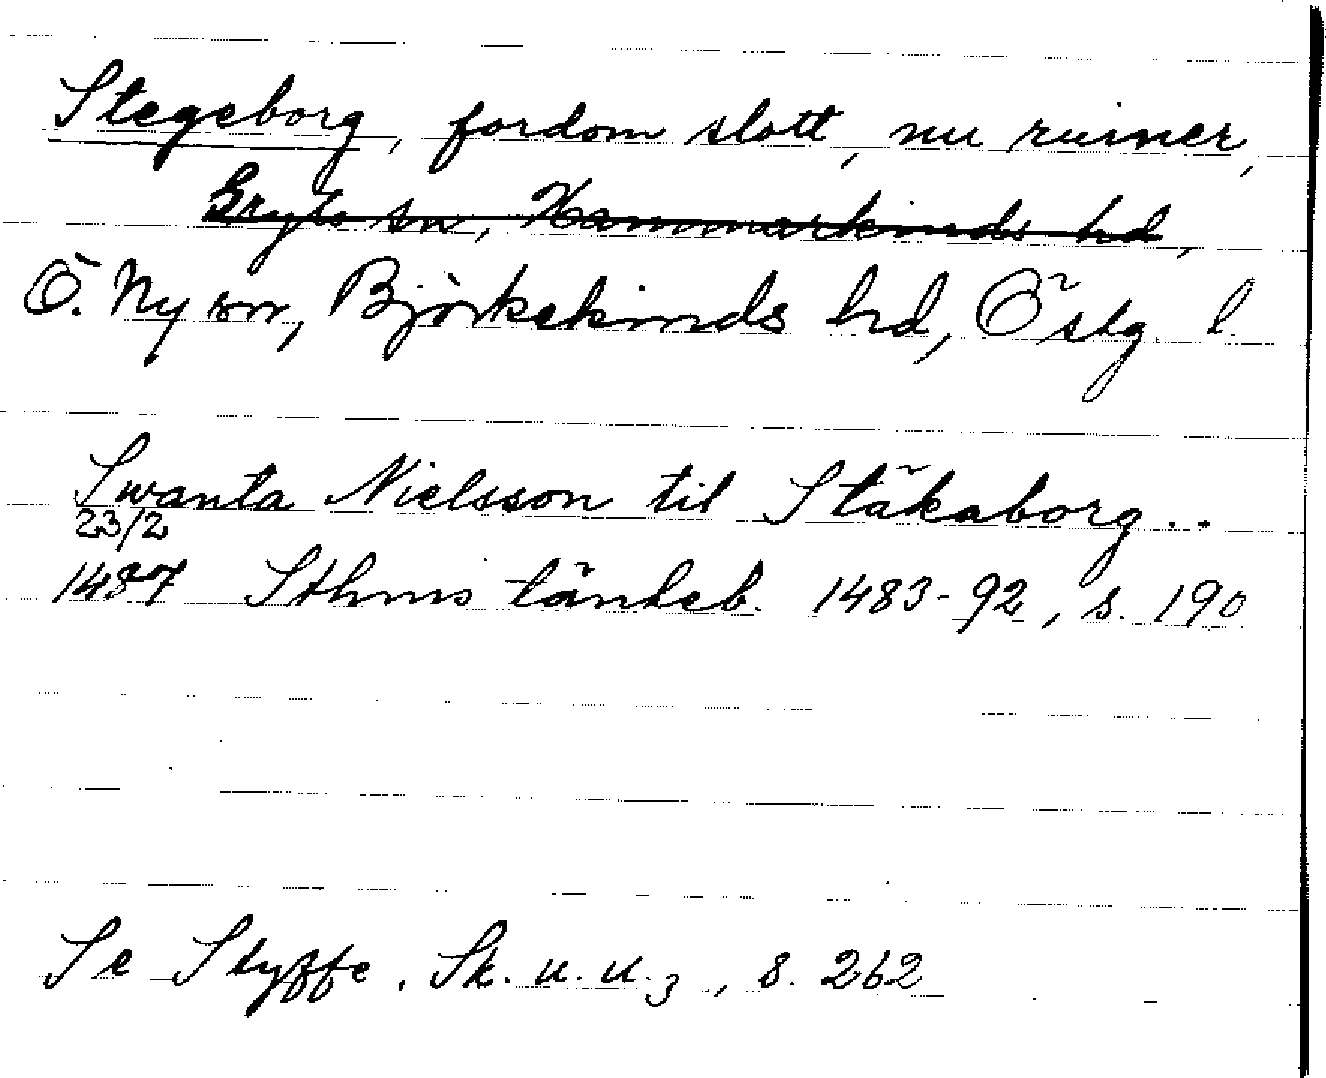 Stegeborg, fordom slott, nu ruiner,
Gryts sn, Hammarkinds hd,
Ö. Ny sn, Björkekinds hd, Östg. l.
Swanta Nielsson til Stäkaborg..
23/2
1487 Sthms tänkeb. 1483-92, s. 190
Se Styffe, Sk. u. u. 3, s. 262